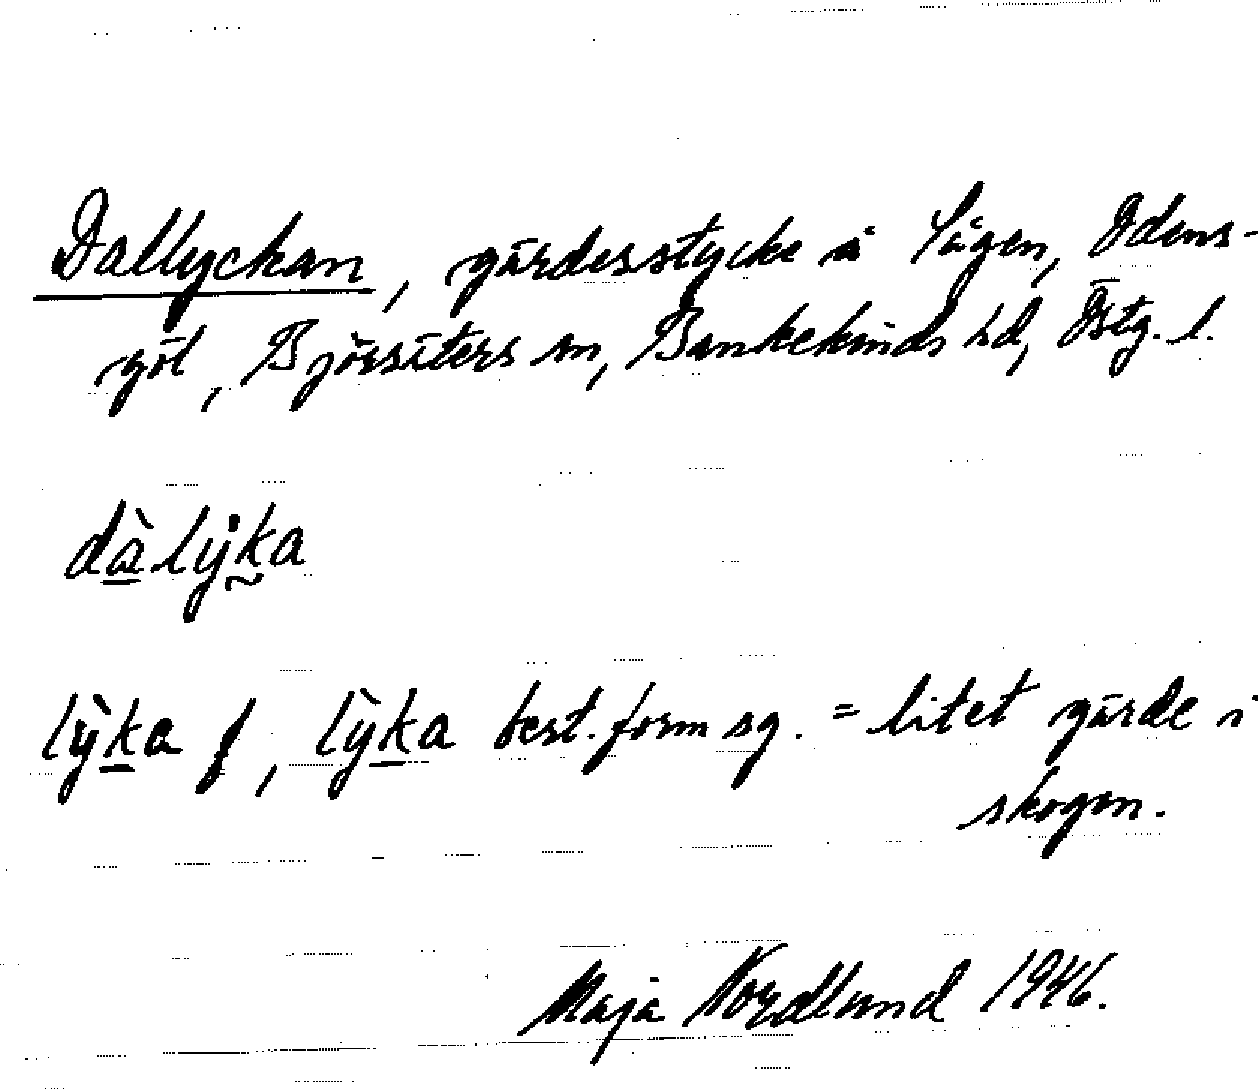 Dallyckan, gärdesstycke å Sågen, Odens-
göl, Björsäters sn, Bankekinds hd, Östg. l.
dàlyka
lỳka f, lỳka best. form sg. = litet gärde i
skogen.
Maja Nordlund 1946.